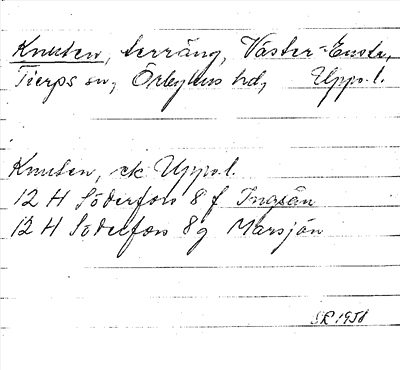 Knuten, terräng, Väster-Ensta,
Tierps sn, Örbyhus hd, Upps.l.
Knuten, ek Upps.l.
12 H Söderfors 8 f Ingsån
12 H Söderfors 8g Marsjön
1958